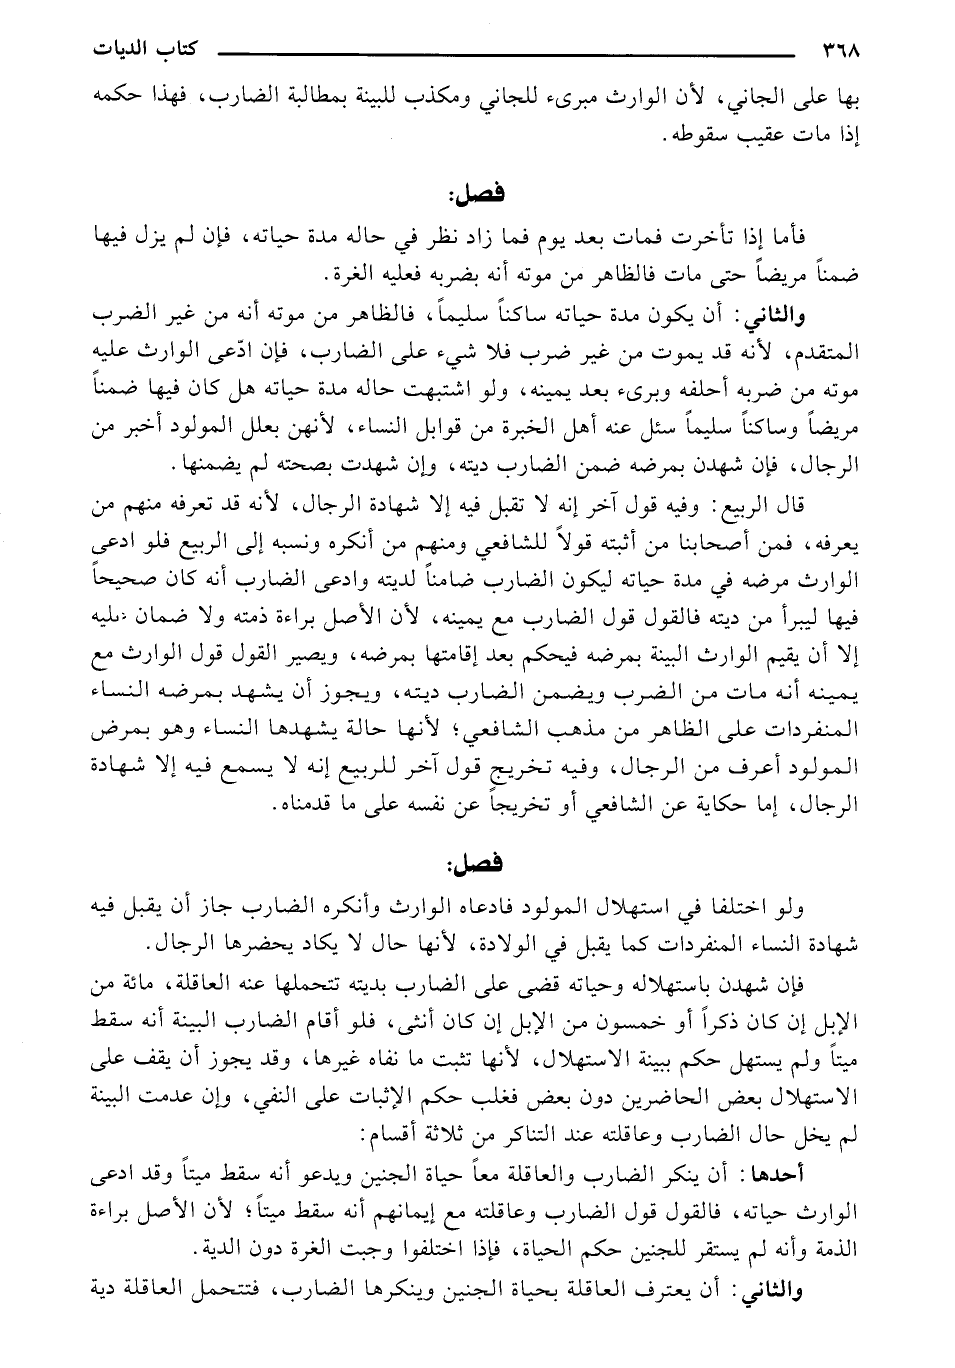 ٣٦٨ كتاب الديات
بها على الجاني، لأن الوارث مبرىء للجاني ومكذب للبينة بمطالبة الضارب، فهذا حكمه
إذا مات عقيب سقوطه.
فصل:
فأما إذا تأخرت فمات بعد يوم فما زاد نظر في حاله مدة حياته، فإن لم يزل فيها
ضمناً مريضاً حتى مات فالظاهر من موته أنه بضربه فعليه الغرة.
والثاني: أن يكون مدة حياته ساكناً سليماً، فالظاهر من موته أنه من غير الضرب
المتقدم، لأنه قد يموت من غير ضرب فلا شيء على الضارب، فإن ادّعى الوارث عليه
موته من ضربه أحلفه وبرىء بعد يمينه، ولو اشتبهت حاله مدة حياته هل كان فيها ضمناً
مريضاً وساكناً سليماً سئل عنه أهل الخبرة من قوابل النساء، لأنهن بعلل المولود أخبر من
الرجال، فإن شهدن بمرضه ضمن الضارب ديته، وإن شهدت بصحته لم يضمنها.
قال الربيع: وفيه قول آخر إنه لا تقبل فيه إلا شهادة الرجال، لأنه قد تعرفه منهم من
يعرفه، فمن أصحابنا من أثبته قولاً للشافعي ومنهم من أنكره ونسبه إلى الربيع فلو ادعى
الوارث مرضه في مدة حياته ليكون الضارب ضامناً لديته وادعى الضارب أنه كان صحيحاً
فيها ليبرأ من ديته فالقول قول الضارب مع يمينه، لأن الأصل براءة ذمته ولا ضمان عليه
إلا أن يقيم الوارث البينة بمرضه فيحكم بعد إقامتها بمرضه، ويصير القول قول الوارث مع
يمينه أنه مات من الضرب ويضمن الضارب ديته، ويجوز أن يشهد بمرضه النساء
المنفردات على الظاهر من مذهب الشافعي؛ لأنها حالة يشهدها النساء وهو بمرض
المولود أعرف من الرجال، وفيه تخريج قول آخر للربيع إنه لا يسمع فيه إلا شهادة
الرجال، إما حكاية عن الشافعي أو تخريجاً عن نفسه على ما قدمناه.
فصل:
ولو اختلفا في استهلال المولود فادعاه الوارث وأنكره الضارب جاز أن يقبل فيه
شهادة النساء المنفردات كما يقبل في الولادة، لأنها حال لا يكاد يحضرها الرجال.
فإن شهدن باستهلاله وحياته قضى على الضارب بديته تتحملها عنه العاقلة، مائة من
الإبل إن كان ذكراً أو خمسون من الإبل إن كان أنثى، فلو أقام الضارب البينة أنه سقط
ميتاً ولم يستهل حكم ببينة الاستهلال، لأنها تثبت ما نفاه غيرها، وقد يجوز أن يقف على
الاستهلال بعض الحاضرين دون بعض فغلب حكم الإثبات على النفي، وإن عدمت البينة
لم يخل حال الضارب وعاقلته عند التناكر من ثلاثة أقسام:
أحدها: أن ينكر الضارب والعاقلة معاً حياة الجنين ويدعو أنه سقط ميتاً وقد ادعى
الوارث حياته، فالقول قول الضارب وعاقلته مع إيمانهم أنه سقط ميتاً؛ لأن الأصل براءة
الذمة وأنه لم يستقر للجنين حكم الحياة، فإذا اختلفوا وجبت الغرة دون الدية.
والثاني: أن يعترف العاقلة بحياة الجنين وينكرها الضارب، فتتحمل العاقلة دية